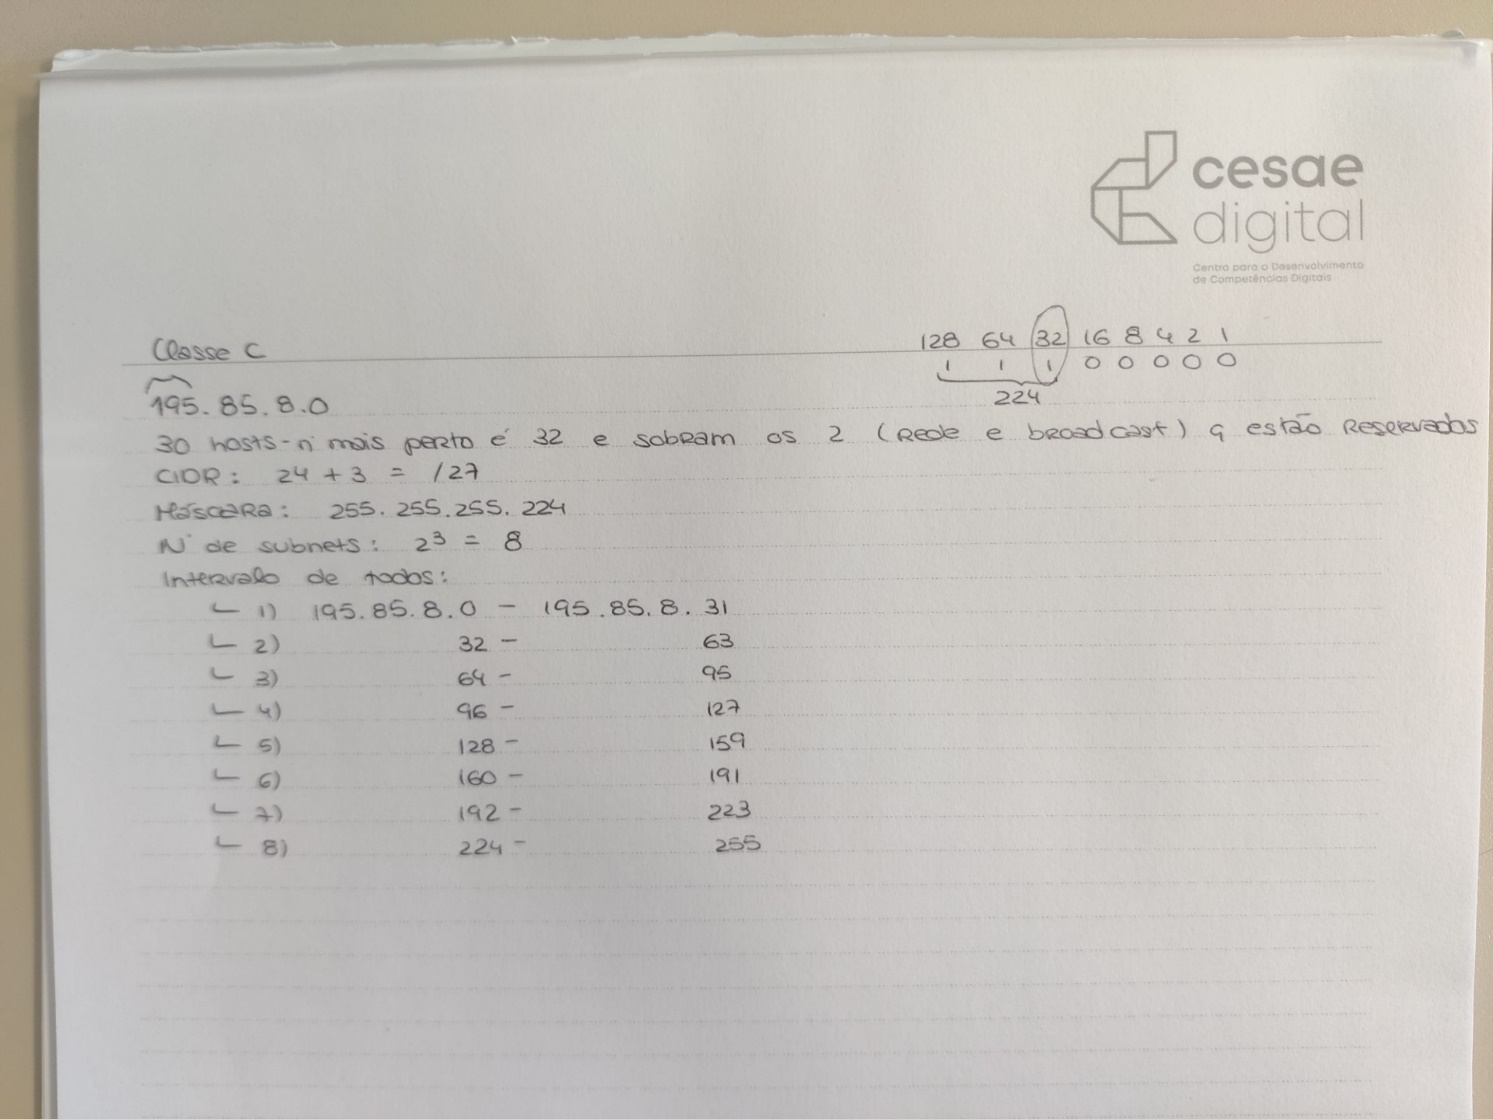 cesae
digital
Centro para o Desenvolvimento
de Competências Digitais
128 64 32 16 8 4 2 1
1 1 1 0 0 0 0 0
224
Classe C
195.85.8.0
30 hosts - nº mais perto é 32 e sobram os 2 (Rede e broadcast) q estão Reservados
CIDR: 24 + 3 = /27
Máscara: 255.255.255.224
Nº de subnets: 2³ = 8
Intervalo de todos:
1) 195.85.8.0 - 195.85.8.31
2) 32 - 63
3) 64 - 95
4) 96 - 127
5) 128 - 159
6) 160 - 191
7) 192 - 223
8) 224 - 255